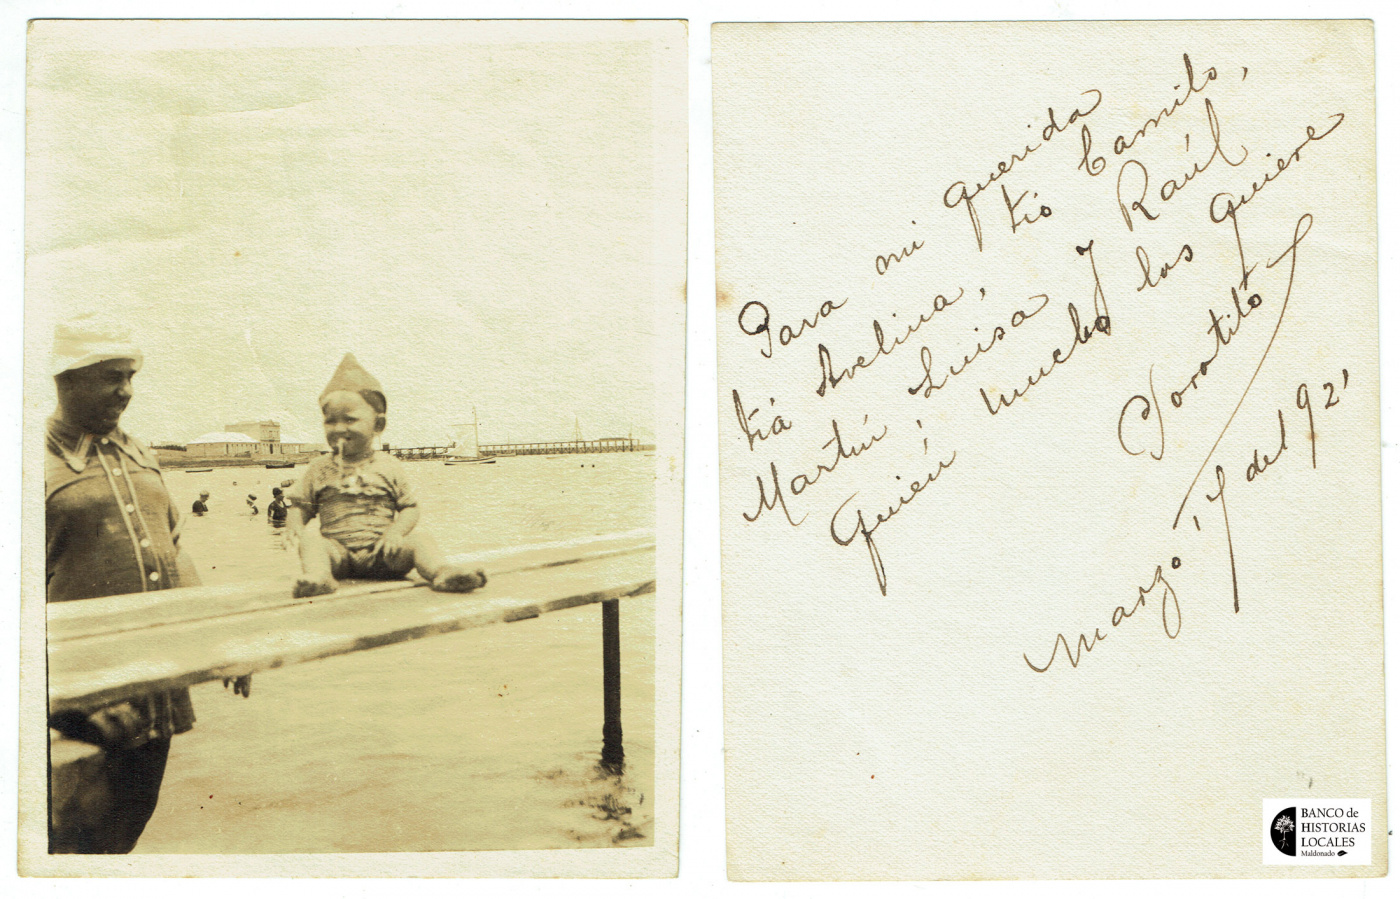 Para mi querida
tiá Avelina, tió Camilo,
Martín, Luisa y Raúl
Quién mucho los quiere
Marzo 17 del 921
BANCO de
HISTORIAS
LOCALES
Maldonado